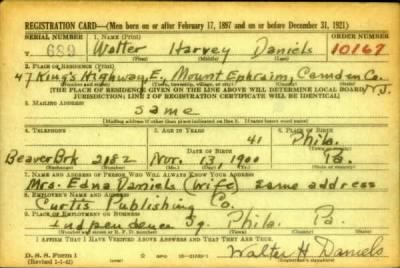 REGISTRATION CARD—(Men born on or after February 17, 1897 and on or before December 31, 1921)
SERIAL NUMBER 1. NAME (Print) ORDER NUMBER
T 689 Walter Harvey Daniels 10167
(First) (Middle) (Last)
2. PLACE OF RESIDENCE (Print)
47 King's Highway E., Mount Ephraim, Camden Co. N.J.
(Number and street) (Town, township, village, or city) (County) (State)
[THE PLACE OF RESIDENCE GIVEN ON THE LINE ABOVE WILL DETERMINE LOCAL BOARD
JURISDICTION; LINE 2 OF REGISTRATION CERTIFICATE WILL BE IDENTICAL]
3. MAILING ADDRESS
Same
[Mailing address if other than place indicated on line 2. If same insert word same]
4. TELEPHONE 5. AGE IN YEARS 6. PLACE OF BIRTH
41 Phila.
DATE OF BIRTH
Beaver Brk 2182 Nov. 13, 1900 Pa.
7. NAME AND ADDRESS OF PERSON WHO WILL ALWAYS KNOW YOUR ADDRESS
Mrs. Edna Daniels (wife) same address
8. EMPLOYER'S NAME AND ADDRESS
Curtis Publishing Co.
9. PLACE OF EMPLOYMENT OR BUSINESS
Independence Sq. Phila. Pa.
(Number and street or R. F. D. number) (Town) (County) (State)
I AFFIRM THAT I HAVE VERIFIED ABOVE ANSWERS AND THAT THEY ARE TRUE.
Walter H. Daniels
D. S. S. Form 1
(Revised 1-1-42) (over)